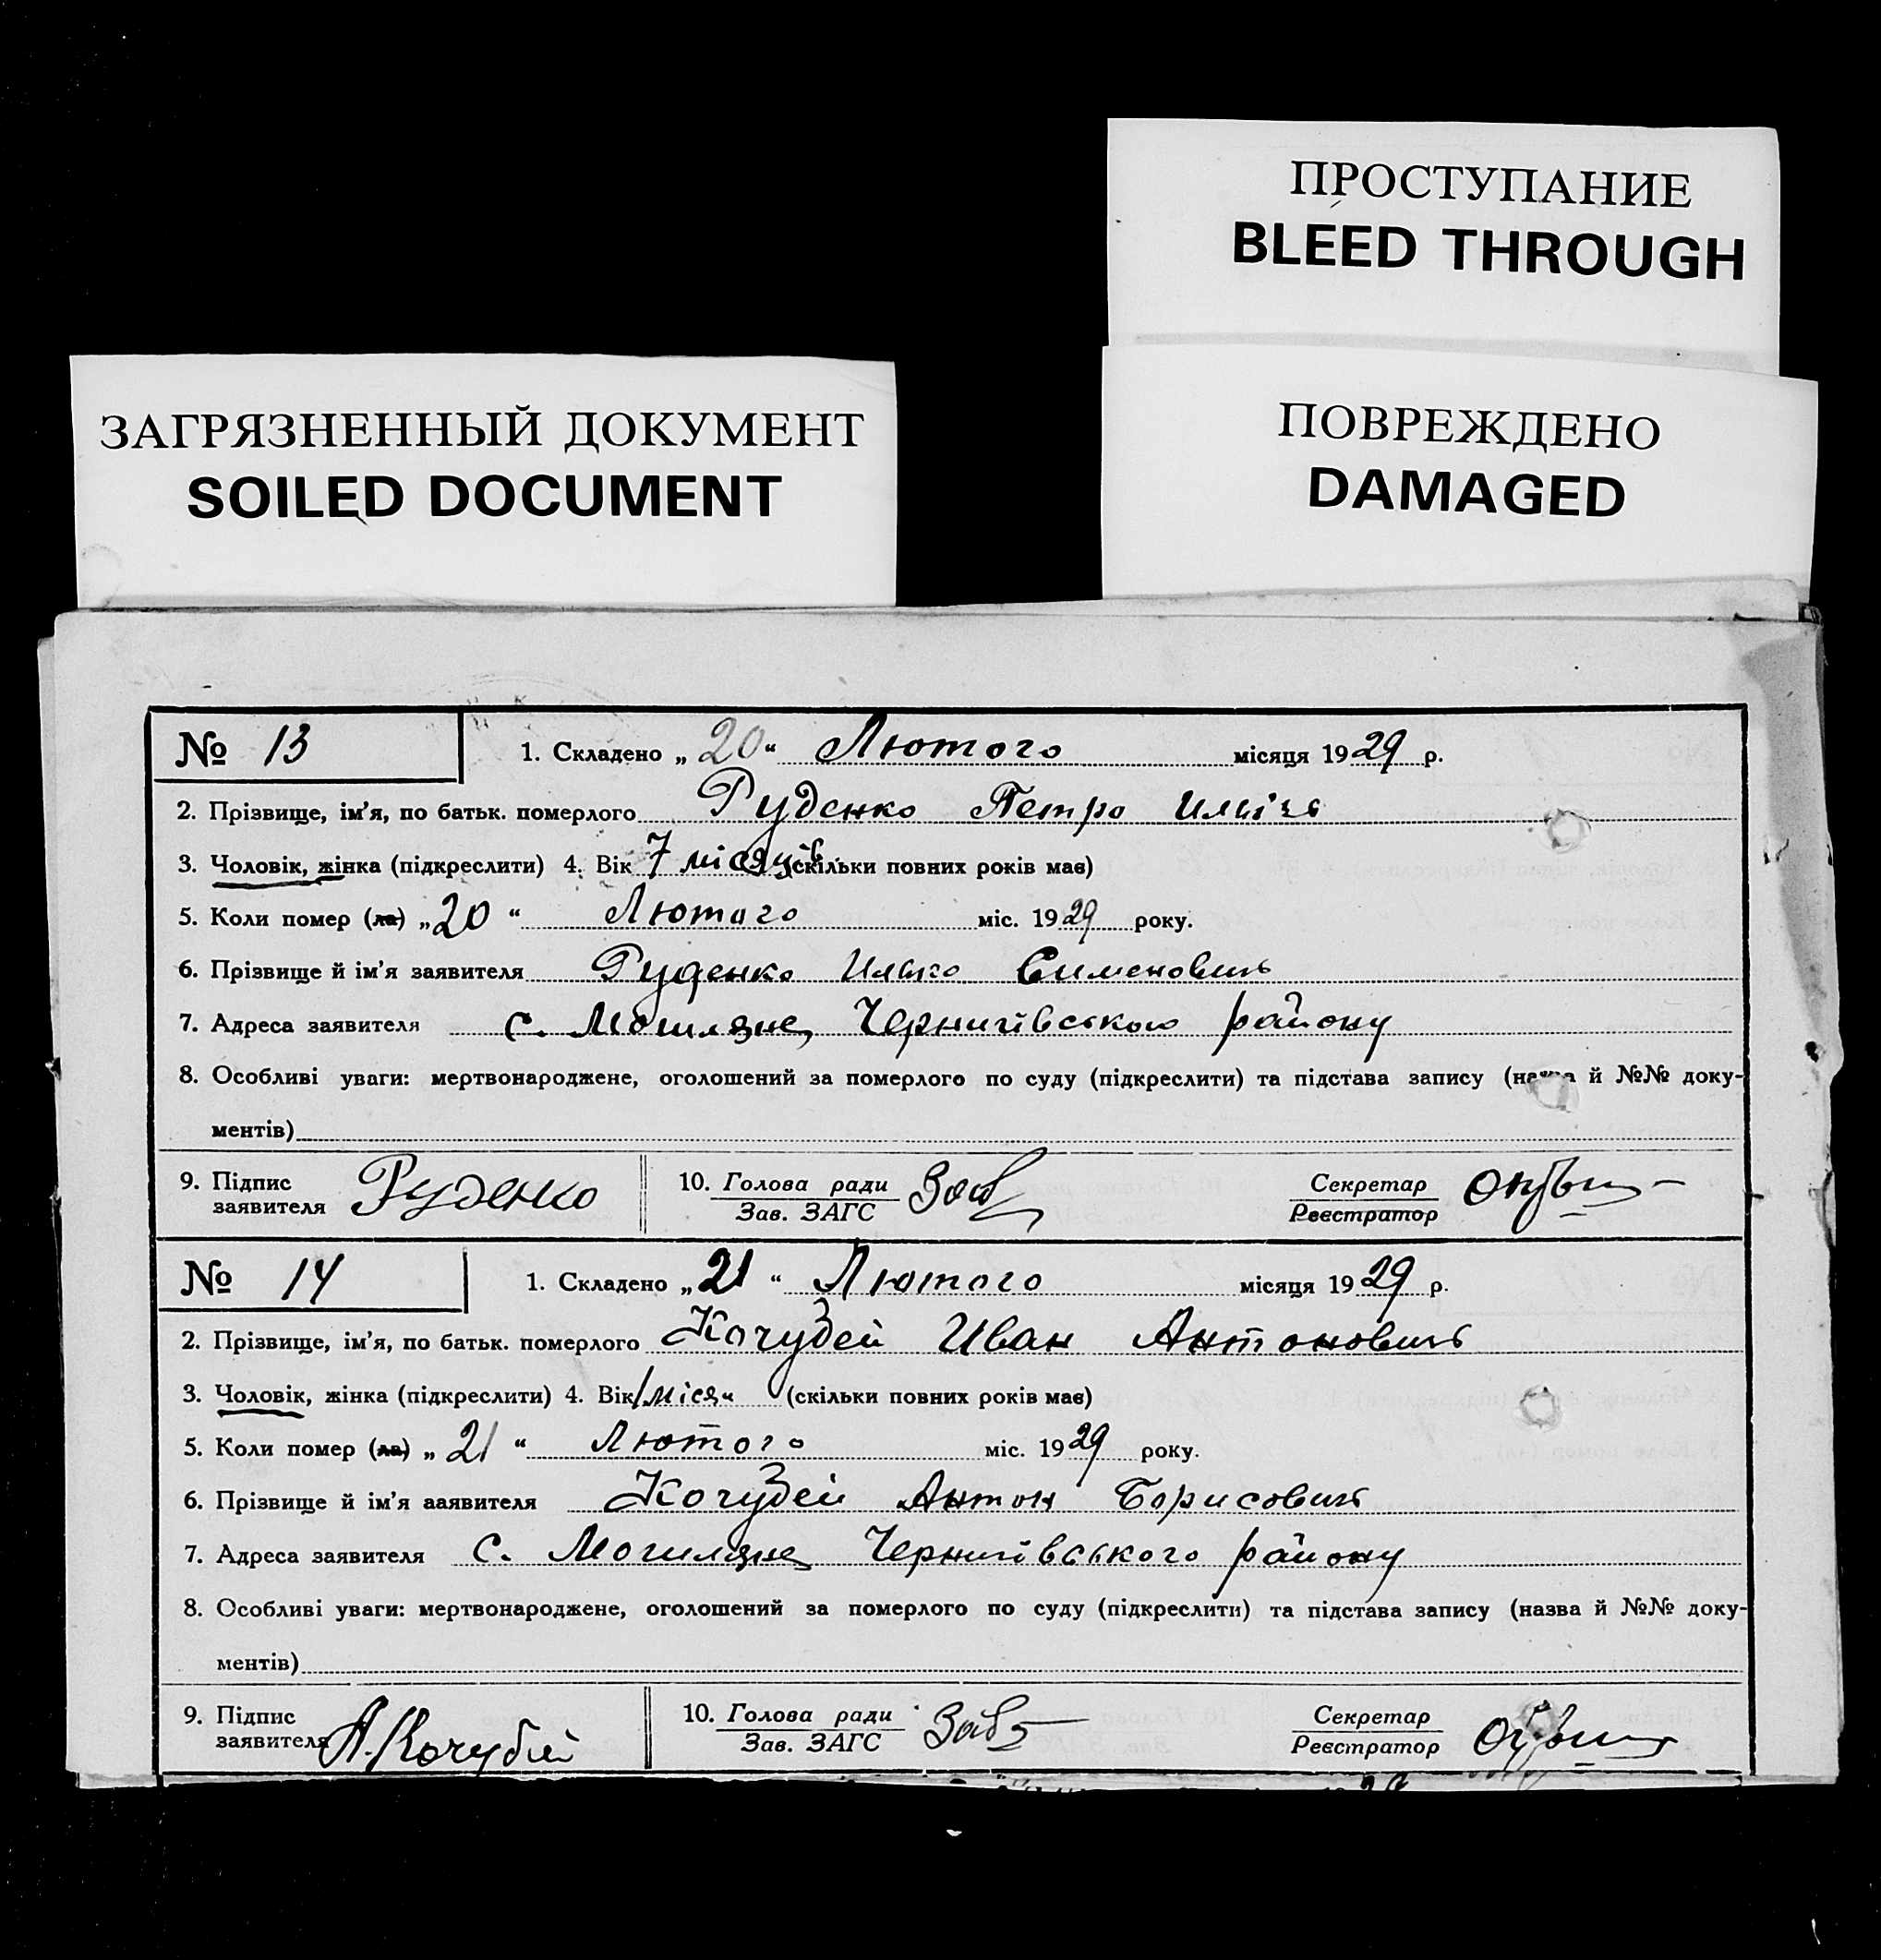 ПРОСТУПАНИЕ
BLEED THROUGH
ЗАГРЯЗНЕННЫЙ ДОКУМЕНТ
SOILED DOCUMENT
ПОВРЕЖДЕНО
DAMAGED
№ 13 1. Складено „20“ Лютого місяця 1929 р.
2. Прізвище, ім'я, по батьк. померлого Руденко Петро Ильіч
3. Чоловік, жінка (підкреслити) 4. Вік 7 місяців (скільки повних років має)
5. Коли помер (ла) „20“ Лютого міс. 1929 року.
6. Прізвище й ім'я заявителя Руденко Илько Сименович
7. Адреса заявителя с. Могиляне, Чернигівського району
8. Особливі уваги: мертвонароджене, оголошений за померлого по суду (підкреслити) та підстава запису (назва й №№ доку-
ментів)
9. Підпис заявителя Руденко 10. Голова ради Зав. ЗАГС Секретар Реєстратор
№ 14 1. Складено „21“ Лютого місяця 1929 р.
2. Прізвище, ім'я, по батьк. померлого Кочубей Иван Антонович
3. Чоловік, жінка (підкреслити) 4. Вік 1 місяц (скільки повних років має)
5. Коли помер (ла) „21“ Лютого міс. 1929 року.
6. Прізвище й ім'я заявителя Кочубей Антон Борисович
7. Адреса заявителя с. Могиляне Чернигівського району
8. Особливі уваги: мертвонароджене, оголошений за померлого по суду (підкреслити) та підстава запису (назва й №№ доку-
ментів)
9. Підпис заявителя А. Кочубей 10. Голова ради Зав. ЗАГС Секретар Реєстратор